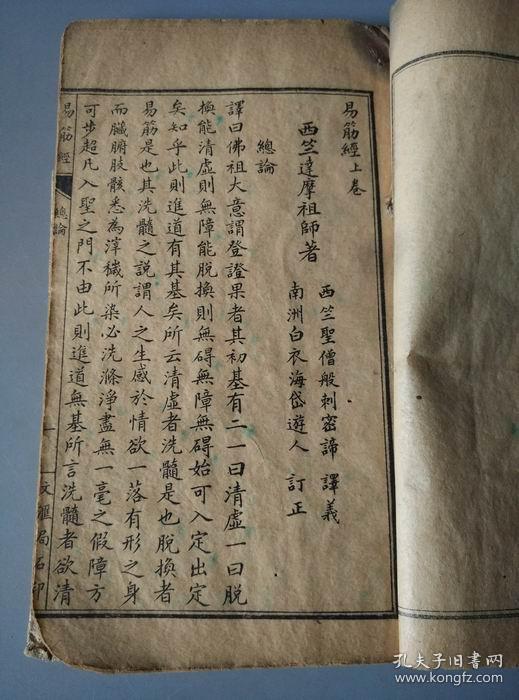 易筋經上卷
西竺達摩祖師著
西竺聖僧般刺密諦 譯義
南洲白衣海岱遊人 訂正
總論
譯曰佛祖大意謂登證果者其初基有二一曰清虛一曰脫
換能清虛則無障能脫換則無碍無障無碍始可入定出定
矣知乎此則進道有其基矣所云清虛者洗髓是也脫換者
易筋是也其洗髓之說謂人之生感於情欲一落有形之身
而臟腑肢骸悉為滓穢所染必洗滌淨盡無一毫之假障方
可步超凡入聖之門不由此則進道無基所言洗髓者欲清
易筋經
總論
一
文匯局石印
孔夫子旧书网
book.kongfz.com